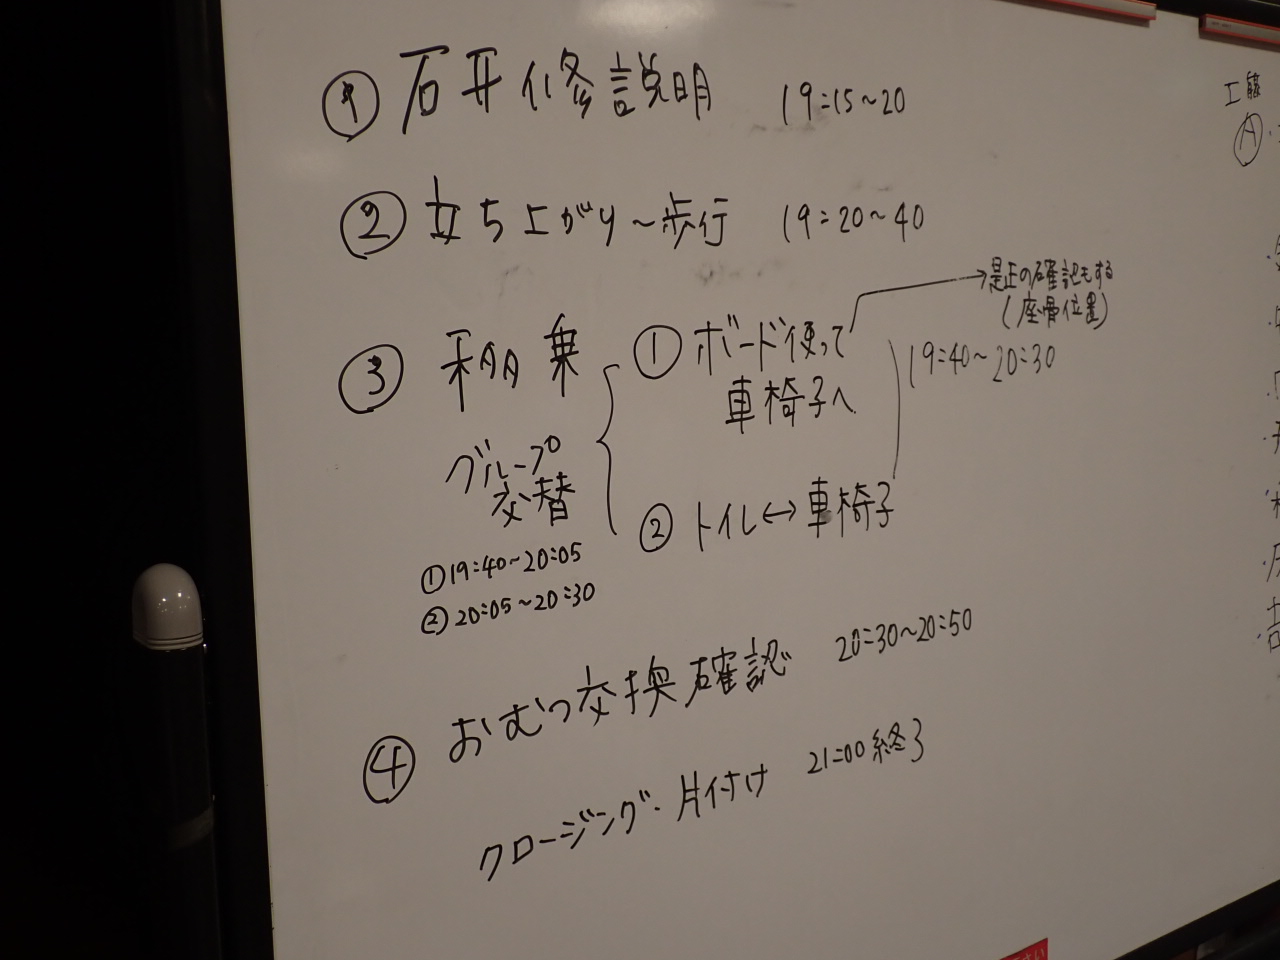 ① 石井修説明 19:15~20
② 立ち上がり~歩行 19:20~40
③ 移乗
グループ
交替
①19:40~20:05
②20:05~20:30
① ボード使って
車椅子へ
→是正の確認もする
(座骨位置)
19:40~20:30
② トイレ↔車椅子
④ おむつ交換確認 20:30~20:50
クロージング・片付け 21:00終了
工藤
Ⓐ